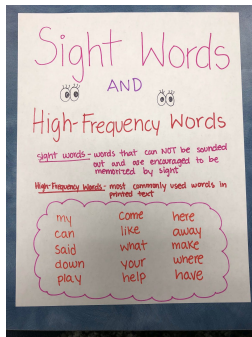 Sight Words
AND
High-Frequency Words
sight words - words that can NOT be sounded
out and are encouraged to be
memorized by sight
High-Frequency Words - most commonly used words in
printed text
my come here
can like away
said what make
down your where
play help have